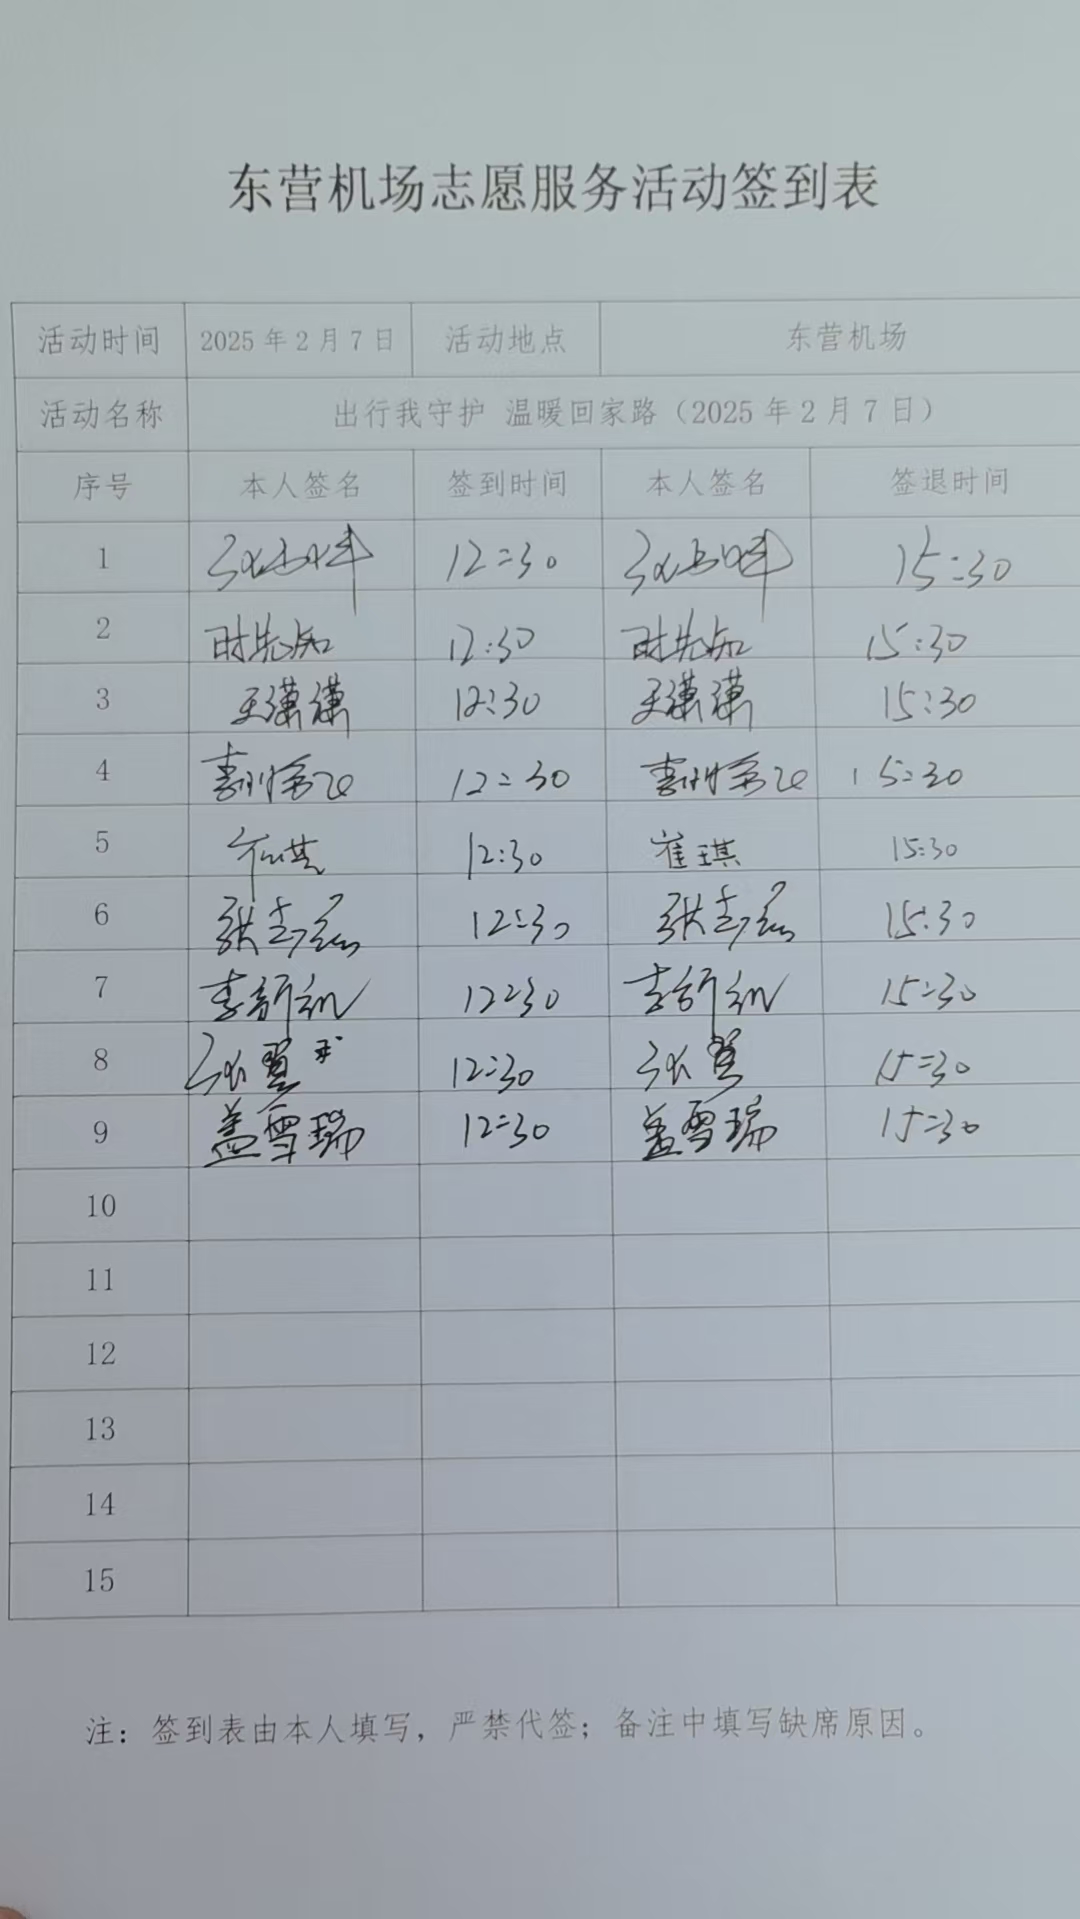 东营机场志愿服务活动签到表
活动时间 2025年2月7日 活动地点 东营机场
活动名称 出行我守护 温暖回家路（2025年2月7日）
序号 本人签名 签到时间 本人签名 签退时间
1 12:30 15:30
2 时先知 12:30 时先知 15:30
3 王潇潇 12:30 王潇潇 15:30
4 12:30 15:30
5 崔琪 12:30 崔琪 15:30
6 12:30 15:30
7 12:30 15:30
8 张翼 12:30 张翼 15:30
9 盖雪瑞 12:30 盖雪瑞 15:30
10
11
12
13
14
15
注：签到表由本人填写，严禁代签；备注中填写缺席原因。